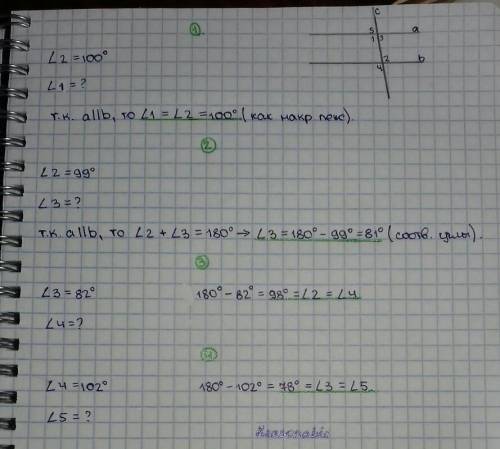 1.
c
5 a
1 3
2 b
4
∠2 = 100°
∠1 = ?
т.к. a||b, то ∠1 = ∠2 = 100° (как накр лежс).
2
∠2 = 99°
∠3 = ?
т.к. a||b, то ∠2 + ∠3 = 180° → ∠3 = 180° - 99° = 81° (соотв. углы).
3
∠3 = 82° 180° - 82° = 98° = ∠2 = ∠4
∠4 = ?
4
∠4 = 102° 180° - 102° = 78° = ∠3 = ∠5
∠5 = ?